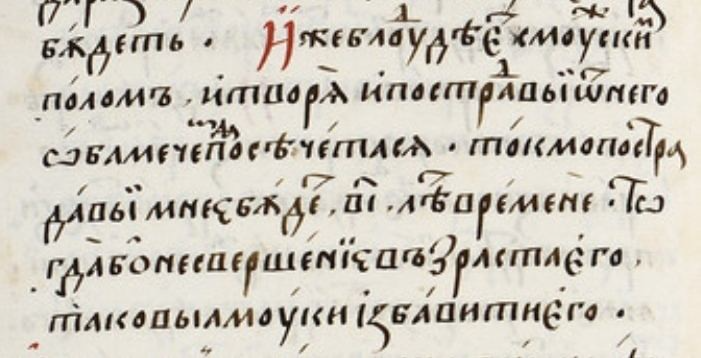 бѫдеть · И҆же блоуⷣ дѣеⷮ с моуⷤскиⷨ
по́ломъ , и҆ творѧ̀ и҆ постраⷣвыї ѿ него
ѡ҆ба мечеⷨ да посѣче́тасѧ · то́кмо постра
да́выї мнеє бѫ́деⷮ , в҃і · лѣⷮ вре́мене · То
гда̀ бо не сверше́нїє възраста є҆го ,
таковыа моу́ки ізба́вити є҆го ·